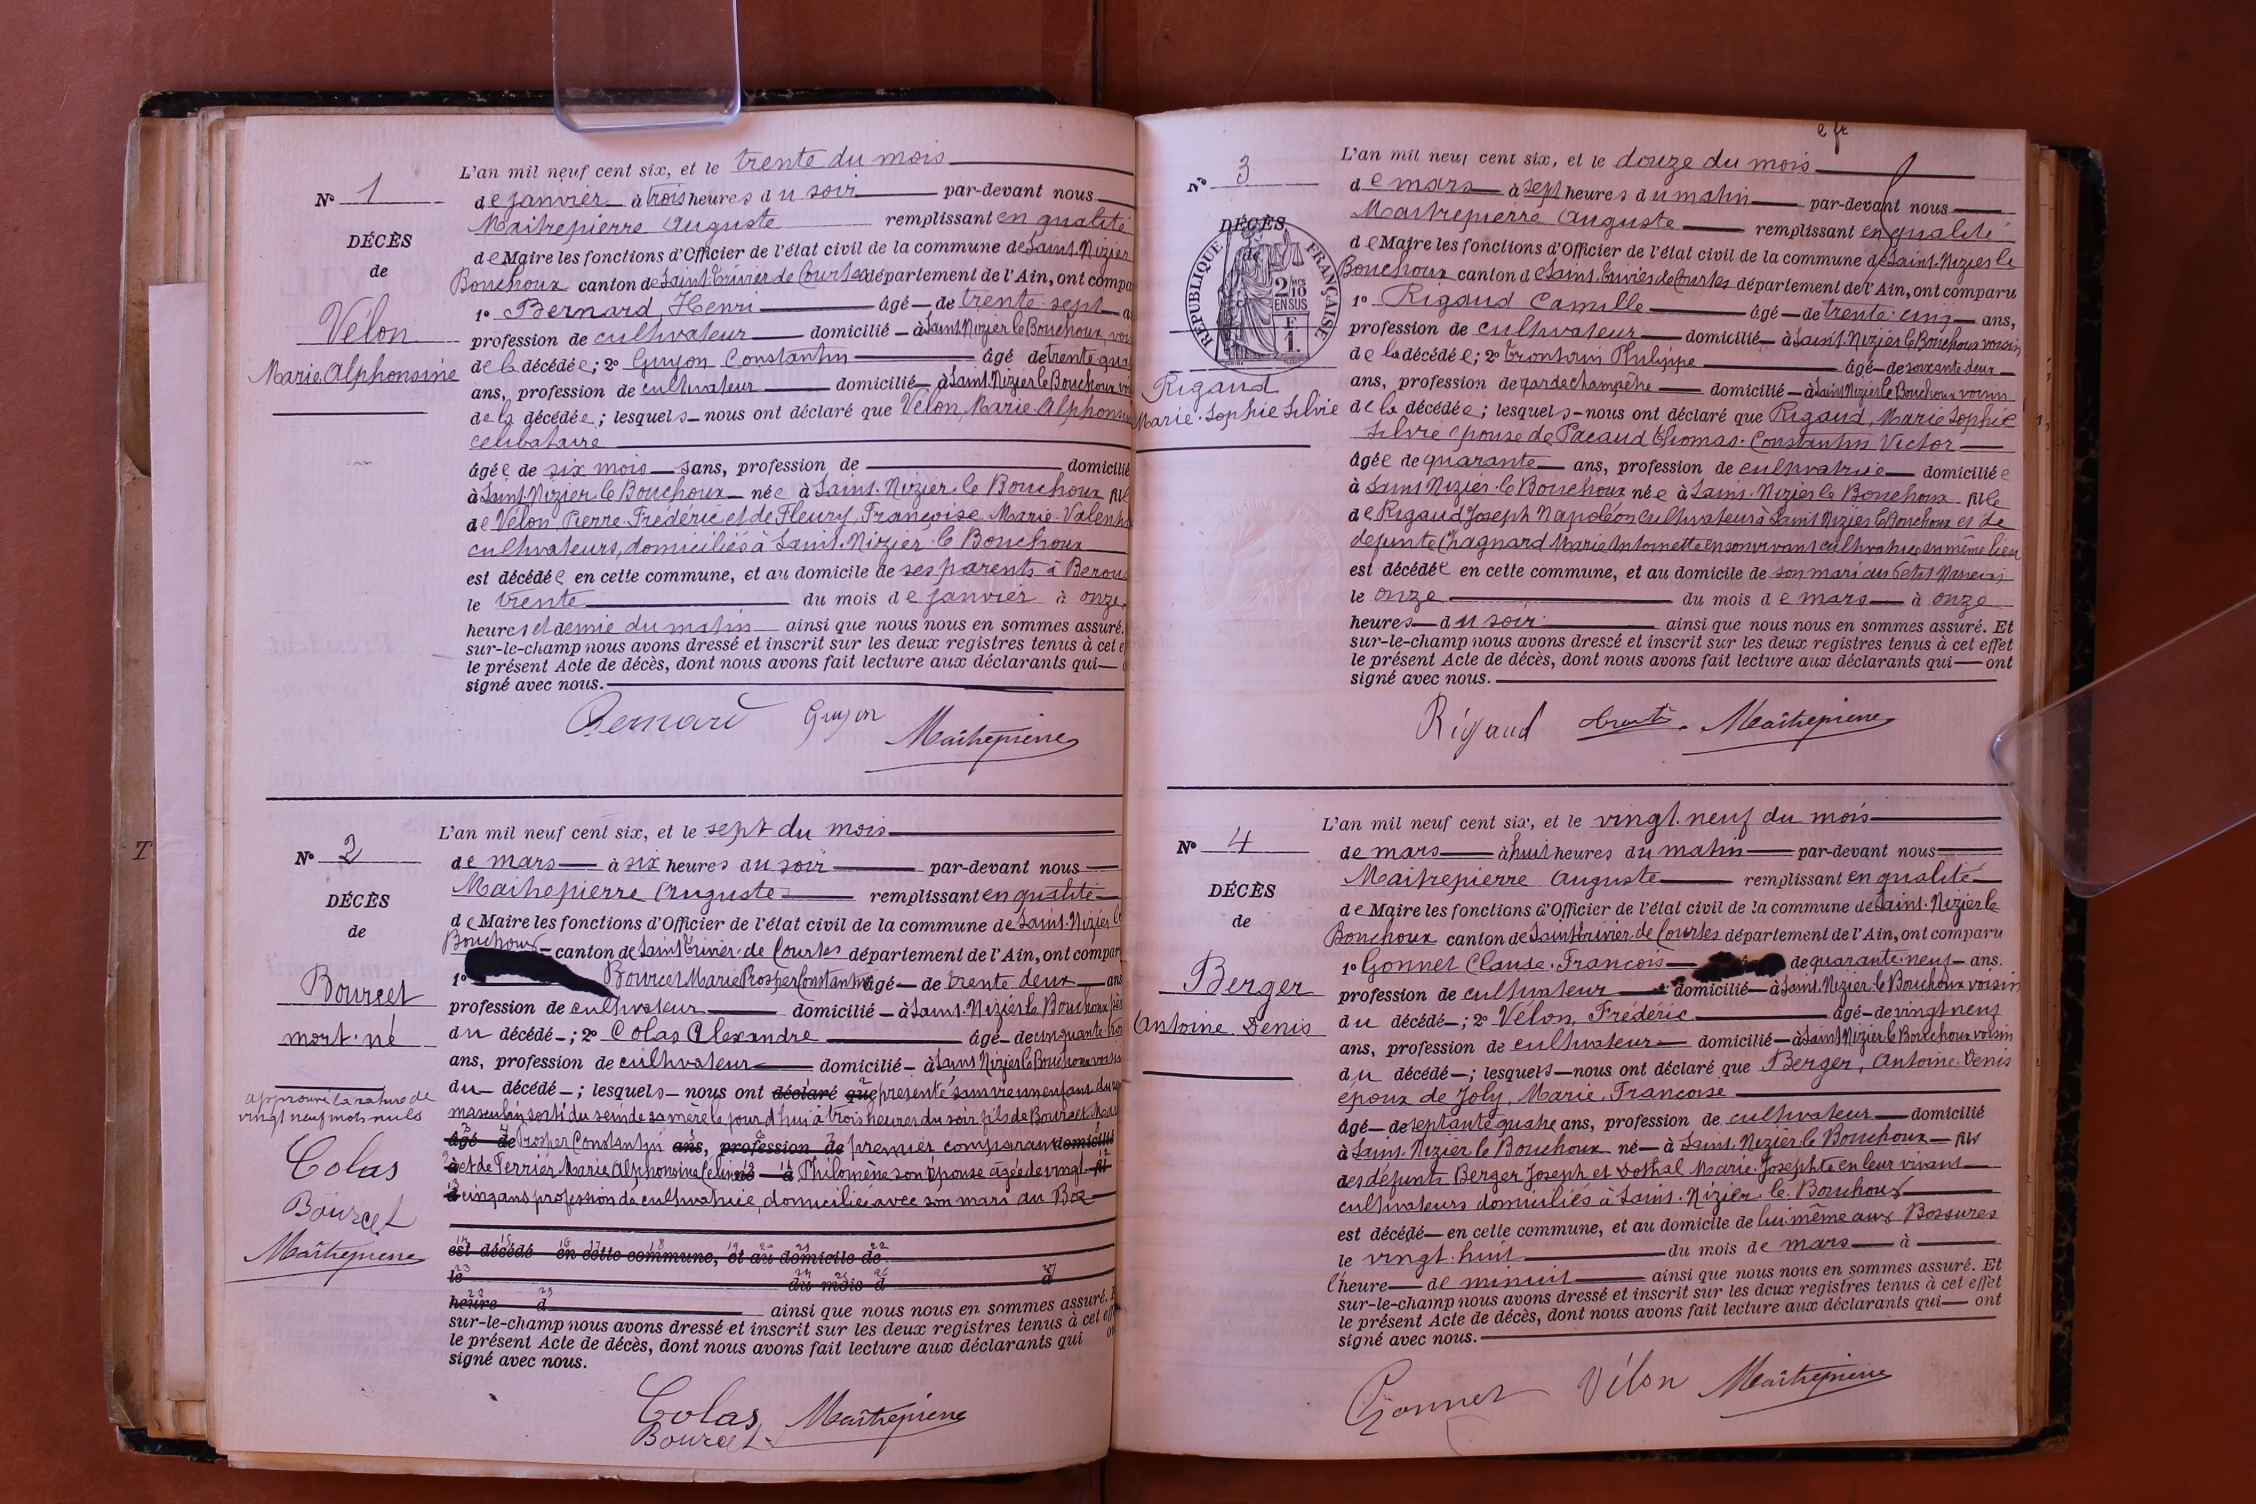 L'an mil neuf cent six, et le trente du mois
N° 1
de janvier à trois heures du soir par-devant nous
Maitrepierre Auguste remplissant en qualité
DÉCÈS
de Maire les fonctions d'Officier de l'état civil de la commune de Saint-Nizier
de
Bouchoux canton de Saint-Trivier de Courtes département de l'Ain, ont compa
1° Bernard, Henri âgé de trente-sept a
Vélon
profession de cultivateur domicilié à Saint Nizier le Bouchoux, voi
de la décédée; 2° Guyon Constantin âgé de trente qua
Marie Alphonsine
ans, profession de cultivateur domicilié à Saint Nizier le Bouchoux voi
de la décédée; lesquels nous ont déclaré que Vélon, Marie-Alphonsi
célibataire
âgée de six mois ans, profession de domicilié
à Saint-Nizier-le Bouchoux née à Saint-Nizier-le Bouchoux fille
de Vélon Pierre-Frédéric et de Fleury, Françoise Marie-Valent
cultivateurs, domiciliés à Saint-Nizier-le Bouchoux
est décédée en cette commune, et au domicile de ses parents à
le trente du mois de janvier à onze
heures et demie du matin ainsi que nous nous en sommes assuré.
sur-le-champ nous avons dressé et inscrit sur les deux registres tenus à cet e
le présent Acte de décès, dont nous avons fait lecture aux déclarants qui
signé avec nous.
Bernard Guyon Maîtrepierre
L'an mil neuf cent six, et le sept du mois
N° 2
de mars à six heures du soir par-devant nous
Maitrepierre Auguste remplissant en qualité
DÉCÈS
de Maire les fonctions d'Officier de l'état civil de la commune de Saint-Nizier le
de
Bouchoux canton de Saint Trivier-de Courtes département de l'Ain, ont compar
1° Bourcet Marie Prosper Constantin âgé de trente deux ans
Bourcet
profession de cultivateur domicilié à Saint-Nizier le Bouchoux
mort-né
du décédé; 2° Colas Alexandre âgé de cinquante
ans, profession de cultivateur domicilié à Saint Nizier le Bouchoux voisin
du décédé; lesquels nous ont déclaré que présenté sans vie un enfant du
approuvé la rature de
vingt neuf mots nuls
masculin sorti du sein de sa mère le jour d'hui à trois heures du soir fils de Bourcet Marie
âgé de Prosper Constantin ans, profession de premier comparant domicilié
Colas
à et de Terrier Marie Alphonsine née à Philomène son épouse agée de vingt fil
Bourcet
d cinq ans profession de cultivatrice, domiciliée avec son mari au Boz
Maîtrepierre
est décédé en cette commune, et au domicile de
le du mois d à
heure d ainsi que nous nous en sommes assuré. E
sur-le-champ nous avons dressé et inscrit sur les deux registres tenus à cet eff
le présent Acte de décès, dont nous avons fait lecture aux déclarants qui on
signé avec nous.
Colas Maîtrepierre
Bourcet
L'an mil neuf cent six, et le douze du mois
N° 3
de mars à sept heures du matin par-devant nous
Maitrepierre Auguste remplissant en qualité
DÉCÈS
de
RÉPUBLIQUE FRANÇAISE
2/10 EN SUS
F 1.
de Maire les fonctions d'Officier de l'état civil de la commune de Saint-Nizier le
Bouchoux canton de Saint-Trivier de Courtes département de l'Ain, ont comparu
1° Rigaud Camille âgé de trente-cinq ans,
profession de cultivateur domicilié à Saint-Nizier le Bouchoux voisin
de la décédée; 2° Philippe âgé de soixante deux
Rigaud
ans, profession de garde champêtre domicilié à Saint Nizier le Bouchoux voisin
Marie-Sophie Silvie
de la décédée; lesquels nous ont déclaré que Rigaud, Marie Sophie
Silvie épouse de Pacaud Thomas-Constantin Victor
âgée de quarante ans, profession de cultivatrice domiciliée
à Saint Nizier-le Bouchoux née à Saint-Nizier le Bouchoux fille
de Rigaud Joseph Napoléon cultivateur à Saint Nizier le Bouchoux et de
défunte Chagnard Marie Antoinette en son vivant cultivatrice du même lieu
est décédée en cette commune, et au domicile de son mari au
le onze du mois de mars à onze
heures du soir ainsi que nous nous en sommes assuré. Et
sur-le-champ nous avons dressé et inscrit sur les deux registres tenus à cet effet
le présent Acte de décès, dont nous avons fait lecture aux déclarants qui ont
signé avec nous.
Rigaud Maîtrepierre
L'an mil neuf cent six, et le vingt-neuf du mois
N° 4
de mars à huit heures du matin par-devant nous
Maitrepierre Auguste remplissant en qualité
DÉCÈS
de Maire les fonctions d'Officier de l'état civil de la commune de Saint-Nizier le
de
Bouchoux canton de Saint Trivier-de Courtes département de l'Ain, ont comparu
1° Gonnet Claude-François de quarante-neuf ans.
Berger
profession de cultivateur domicilié à Saint-Nizier-le Bouchoux voisin
Antoine Denis
du décédé; 2° Vélon, Frédéric âgé de vingt neuf
ans, profession de cultivateur domicilié à Saint Nizier le Bouchoux voisin
du décédé; lesquels nous ont déclaré que Berger, Antoine-Denis
époux de Joly, Marie-Françoise
âgé de septante quatre ans, profession de cultivateur domicilié
à Saint-Nizier le Bouchoux né à Saint-Nizier-le Bouchoux fils
des défunts Berger Joseph et Marie-Josephte en leur vivant
cultivateurs domiciliés à Saint-Nizier-le-Bouchoux
est décédé en cette commune, et au domicile de lui même aux Bossures
le vingt-huit du mois de mars à
l'heure de minuit ainsi que nous nous en sommes assuré. Et
sur-le-champ nous avons dressé et inscrit sur les deux registres tenus à cet effet
le présent Acte de décès, dont nous avons fait lecture aux déclarants qui ont
signé avec nous.
Gonnet Vélon Maîtrepierre